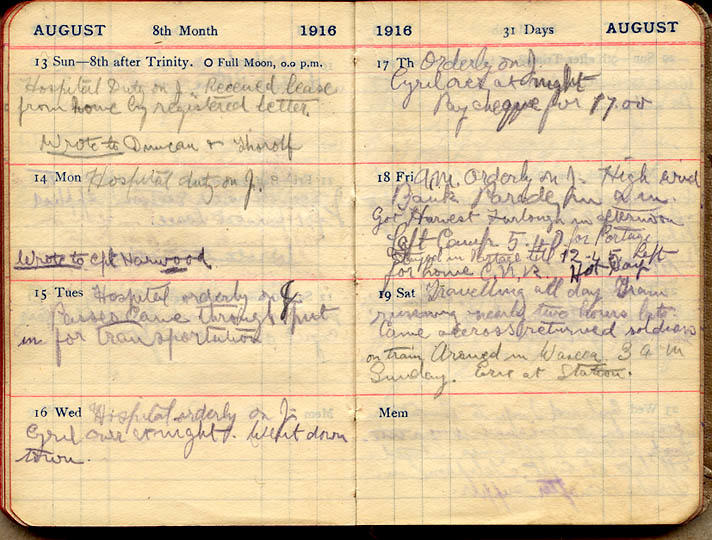 AUGUST 8th Month 1916
13 Sun—8th after Trinity. O Full Moon, 0.0 p.m.
Hospital Duty on J. Received lease
from home by registered letter.
Wrote to Duncan & Thorolf
14 Mon Hospital duty on J.
Wrote to Cpt Narwood
15 Tues Hospital orderly on J
Passes Came through & put
in for transportation
16 Wed Hospital orderly on J.
Cyril over at night. Went down
town.
1916 31 Days AUGUST
17 Th Orderly on J.
Cyril over at night
Pay cheque for 17.00
18 Fri A.M. Orderly on J. High wind
Bank Parade in a.m.
Got Harvest Furlough in afternoon
Left Camp 5.40 for Portage
Stayed in Portage till 12-45 Left
for home C.N.R. Hot Day
19 Sat Travelling all day Train
running nearly two hours late.
Came across returned soldiers
on train Arrived in Waseca 3 a m
Sunday. Eric at Station.
Mem